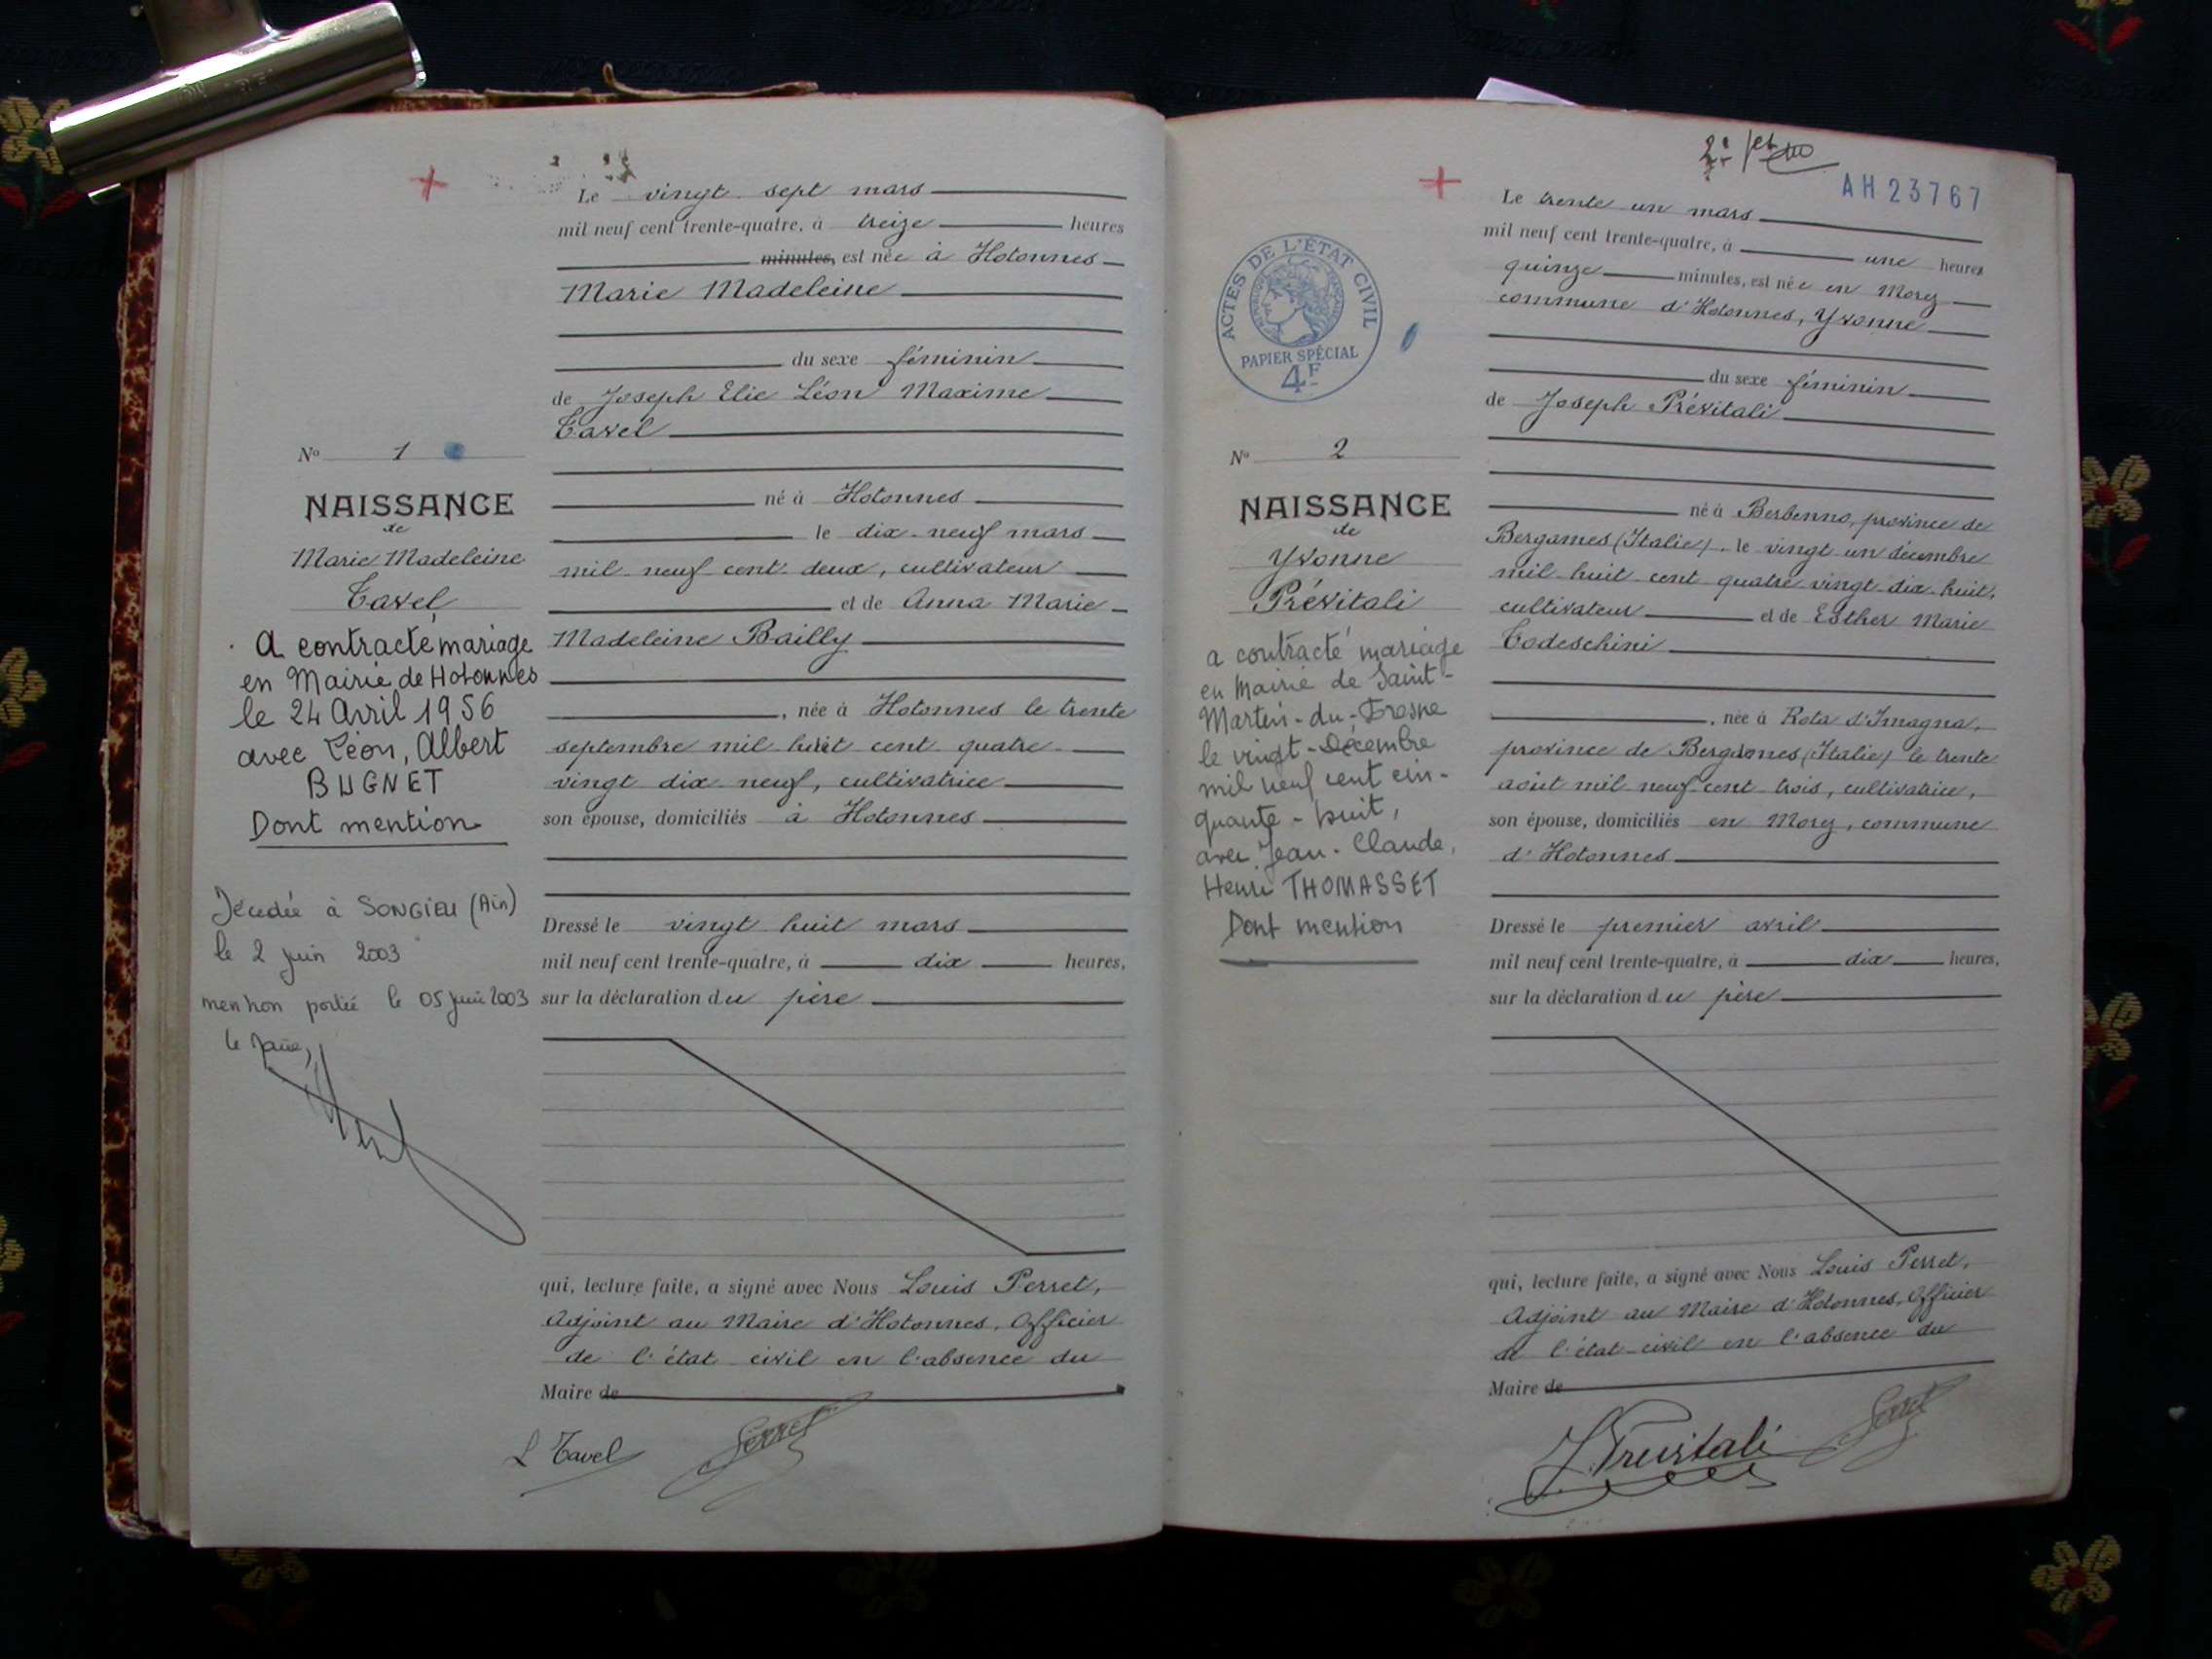 Le vingt sept mars
mil neuf cent trente-quatre, à treize heures
minutes, est née à Hotonnes
Marie Madeleine
du sexe féminin
de Joseph Elie Léon Maxime
Tavel
né à Hotonnes
le dix-neuf mars
mil neuf cent deux, cultivateur
et de Anna Marie
Madeleine Bailly
, née à Hotonnes le trente
septembre mil huit cent quatre
vingt dix neuf, cultivatrice
son épouse, domiciliés à Hotonnes
Dressé le vingt huit mars
mil neuf cent trente-quatre, à dix heures,
sur la déclaration du père
qui, lecture faite, a signé avec Nous Louis Perret,
Adjoint au Maire d'Hotonnes, Officier
de l'état civil en l'absence du
Maire de
L Tavel Perret
No 1
NAISSANCE
de
Marie Madeleine
Tavel
A contracté mariage
en Mairie de Hotonnes
le 24 Avril 1956
avec Léon, Albert
BUGNET
Dont mention
Décédée à SONGIEU (Ain)
le 2 juin 2003
mention portée le 05 juin 2003
le Maire,
AH23767
Le trente un mars
mil neuf cent trente-quatre, à une heures
quinze minutes, est née en Mory
commune d'Hotonnes, Yvonne
du sexe féminin
de Joseph Prévitali
né à Berbenno, province de
Bergames (Italie), le vingt un décembre
mil huit cent quatre vingt dix huit,
cultivateur et de Esther Marie
Todeschini
, née à Rota d'Imagna,
province de Bergames (Italie) le trente
août mil neuf cent trois, cultivatrice,
son épouse, domiciliés en Mory, commune
d'Hotonnes
Dressé le premier avril
mil neuf cent trente-quatre, à dix heures,
sur la déclaration du père
qui, lecture faite, a signé avec Nous Louis Perret,
Adjoint au Maire d'Hotonnes, Officier
de l'état-civil en l'absence du
Maire de
J. Previtali Perret
ACTES DE L'ÉTAT CIVIL
PAPIER SPÉCIAL
4F
No 2
NAISSANCE
de
Yvonne
Prévitali
a contracté mariage
en Mairie de Saint-
Martin-du-Fresne
le vingt-Décembre
mil neuf cent cin-
quante-huit,
avec Jean-Claude,
Henri THOMASSET
Dont mention